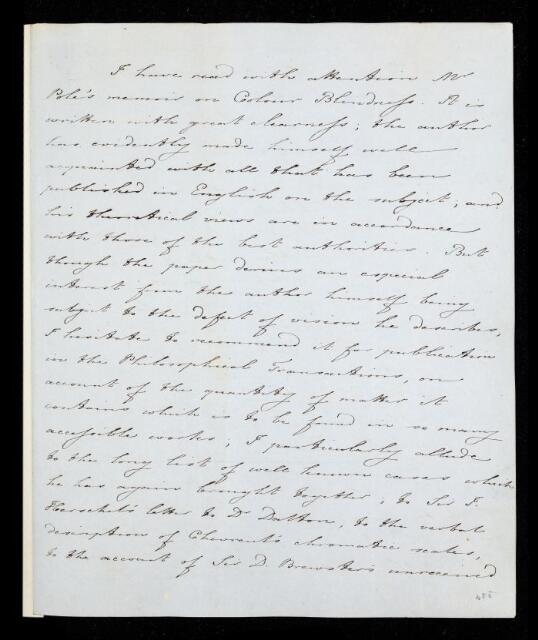 I have read with attention Mr
Pole's memoir on Colour Blindness. It is
written with great clearness; the author
has evidently made himself well
acquainted with all that has been
published in English on the subject; and
his theoretical views are in accordance
with those of the best authorities. But
though the paper derives an especial
interest from the author himself being
subject to the defect of vision he describes,
I hesitate to recommend it for publication
in the Philosophical Transactions, on
account of the quantity of matter it
contains which is to be found in so many
accessible works; I particularly allude
to the long list of well known cases which
he has again brought together; to Sir J.
Herschel's letter to Dr Dalton, to the verbal
description of Chevreul's chromatic scales,
to the account of Sir D. Brewster's unreceived